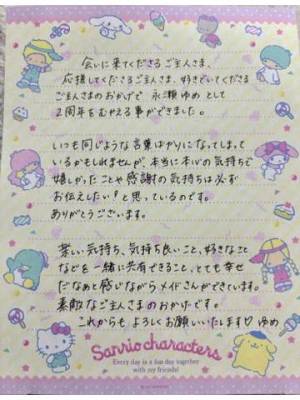 会いに来てくださるご主人さま、
応援してくださるご主人さま、好きでいてくださる
ご主人さまのおかげで 永瀬ゆめ として
2周年をむかえる事ができました。
いつも同じような言葉ばかりになってしまって
いるかもしれませんが、本当に本心の気持ちで
嬉しかったことや感謝の気持ちは必ず
お伝えしたい!と思っているのです。
ありがとうございます。
楽しい気持ち、気持ち良いこと、好きなこと
などを一緒に共有できること、とても幸せ
だなぁと感じながらメイドさんができています。
素敵なご主人さまのおかげです。
これからも よろしくお願いいたします♡ ゆめ
Sanrio characters
Every day is a fun day together
with my friends!